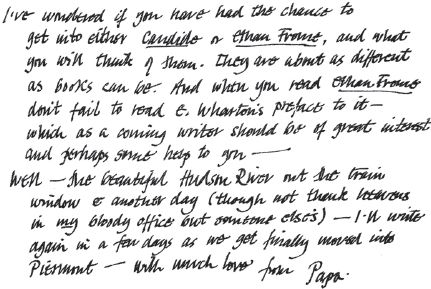 I've wondered if you have had the chance to
get into either Candide or Ethan Frome, and what
you will think of them. They are about as different
as books can be. And when you read Ethan Frome
don't fail to read E. Wharton's preface to it —
which as a coming writer should be of great interest
and perhaps some help to you —
Well — the beautiful Hudson River out the train
window & another day (though not thank heavens
in my bloody office but someone else's) — I'll write
again in a few days as we get finally moved into
Piermont — with much love from Papa.